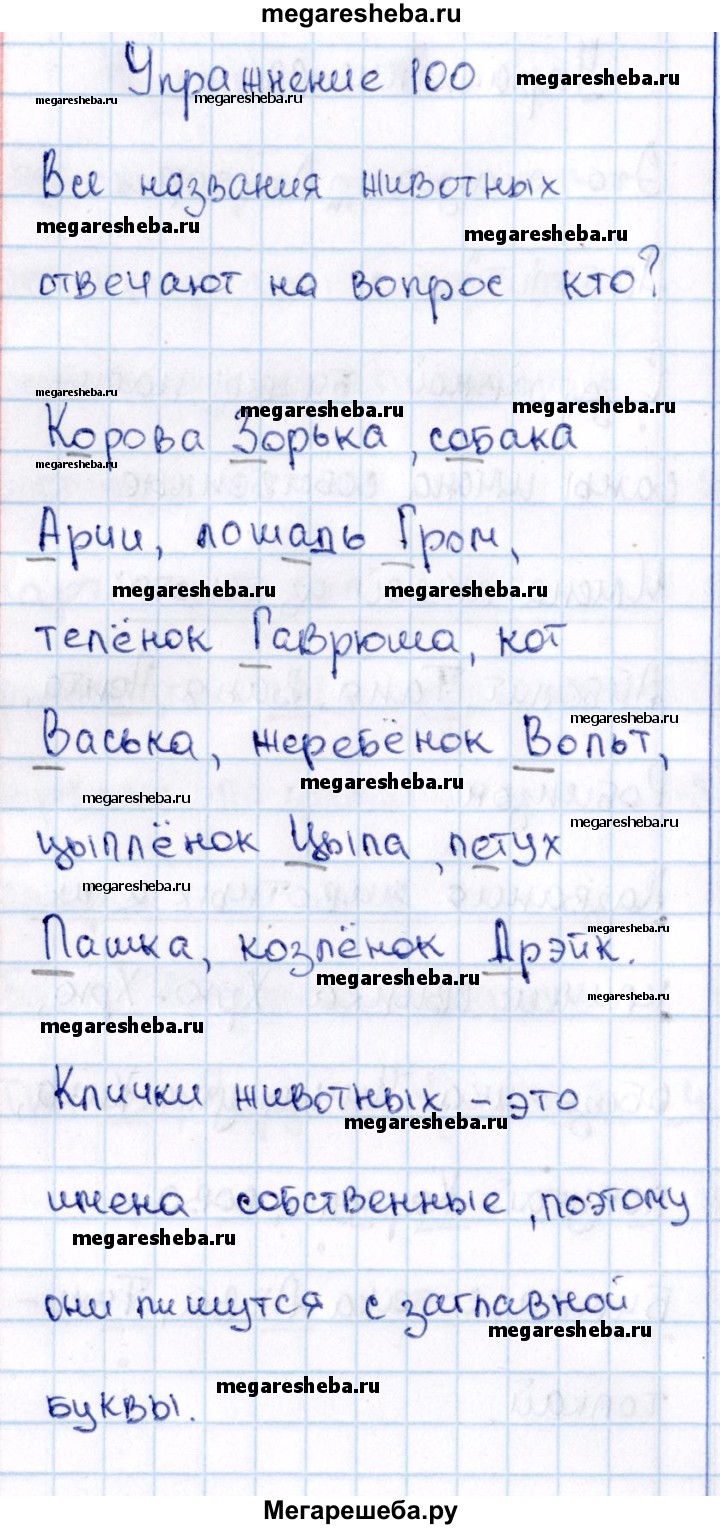 megaresheba.ru
Упражнение 100
megaresheba.ru
megaresheba.ru
megaresheba.ru
Все названия животных
megaresheba.ru
megaresheba.ru
отвечают на вопрос кто?
megaresheba.ru
megaresheba.ru
megaresheba.ru
Корова Зорька, собака
megaresheba.ru
Арчи, лошадь Гром,
megaresheba.ru
megaresheba.ru
телёнок Гаврюша, кот
megaresheba.ru
Васька, жеребёнок Вольт,
megaresheba.ru
megaresheba.ru
megaresheba.ru
цыплёнок Цыпа, петух
megaresheba.ru
megaresheba.ru
Пашка, козлёнок Дрэйк.
megaresheba.ru
megaresheba.ru
megaresheba.ru
Клички животных - это
megaresheba.ru
имена собственные, поэтому
megaresheba.ru
они пишутся с заглавной
megaresheba.ru
megaresheba.ru
буквы.
Мегарешеба.ру